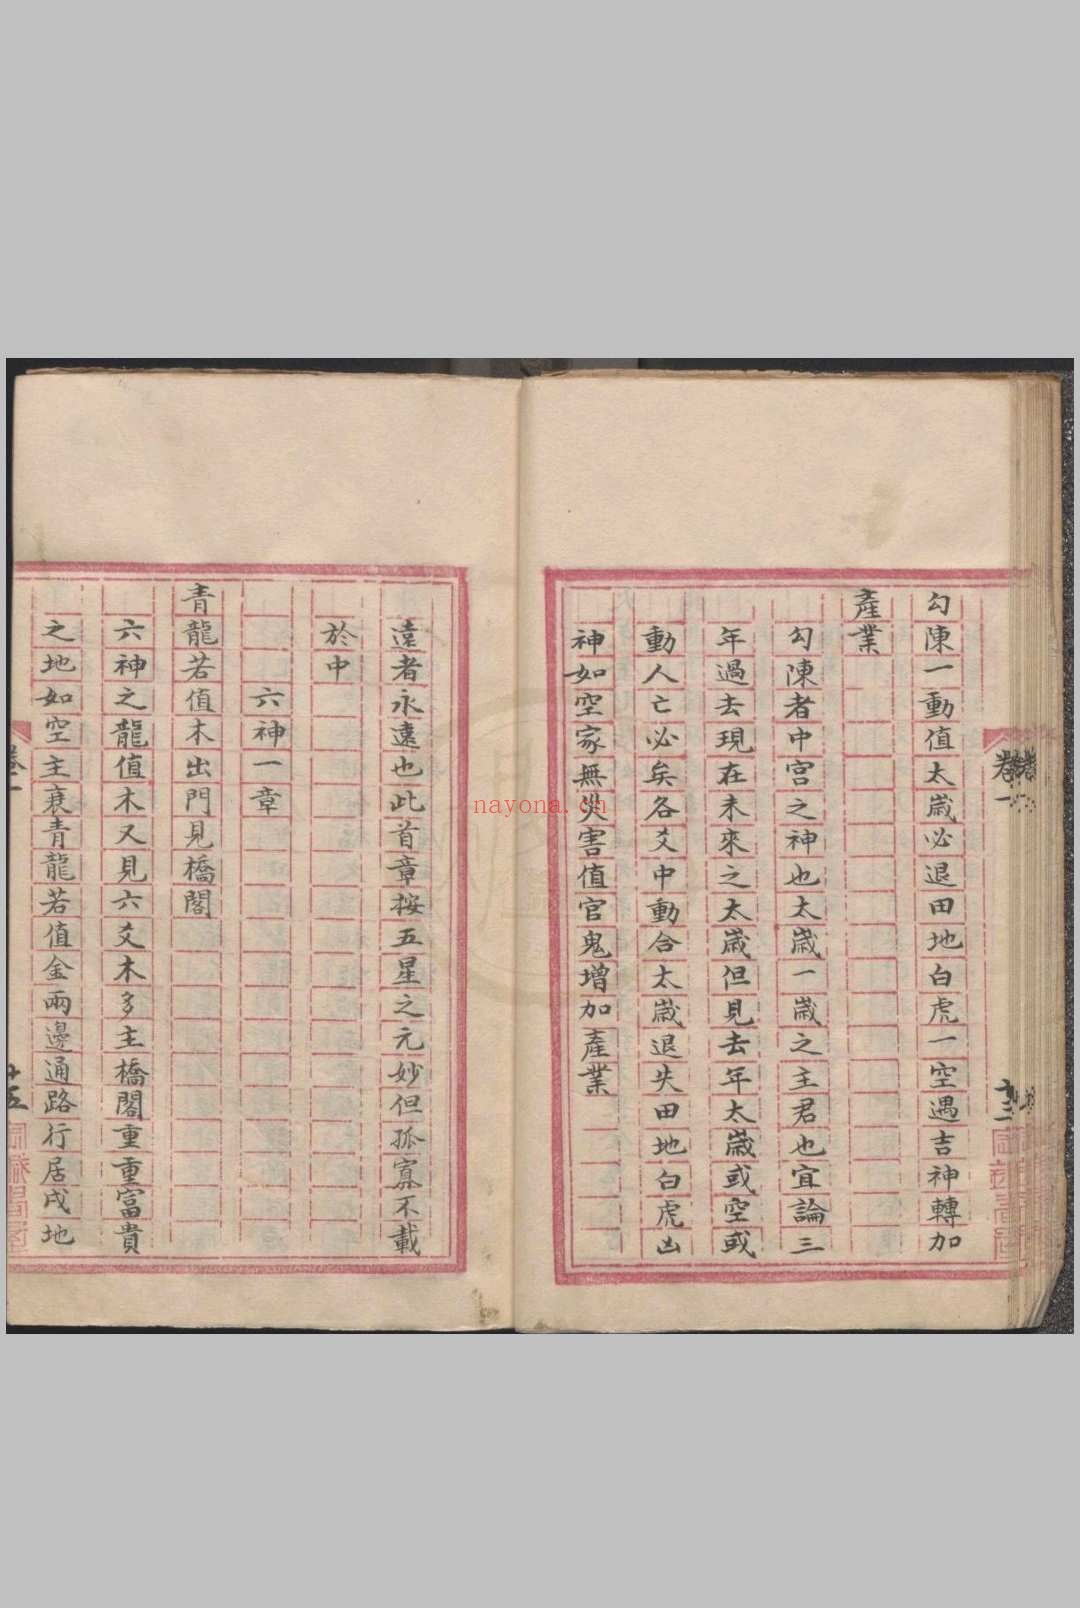 勾陳一動值太歲必退田地白虎一空遇吉神轉加
產業
勾陳者中宮之神也太歲一歲之主君也宜論三
年過去現在未來之太歲但見去年太歲或空或
動人亡必矣各爻中動合太歲退失田地白虎凶
神如空家無災害值官鬼增加產業
遠者永遠也此首章按五星之元妙但孤寡不載
於中
六神一章
青龍若值木出門見橋閣
六神之龍值木又見六爻木多主橋閣重重富貴
之地如空主衰青龍若值金兩邊通路行居戍地
卷一
nayona.cn